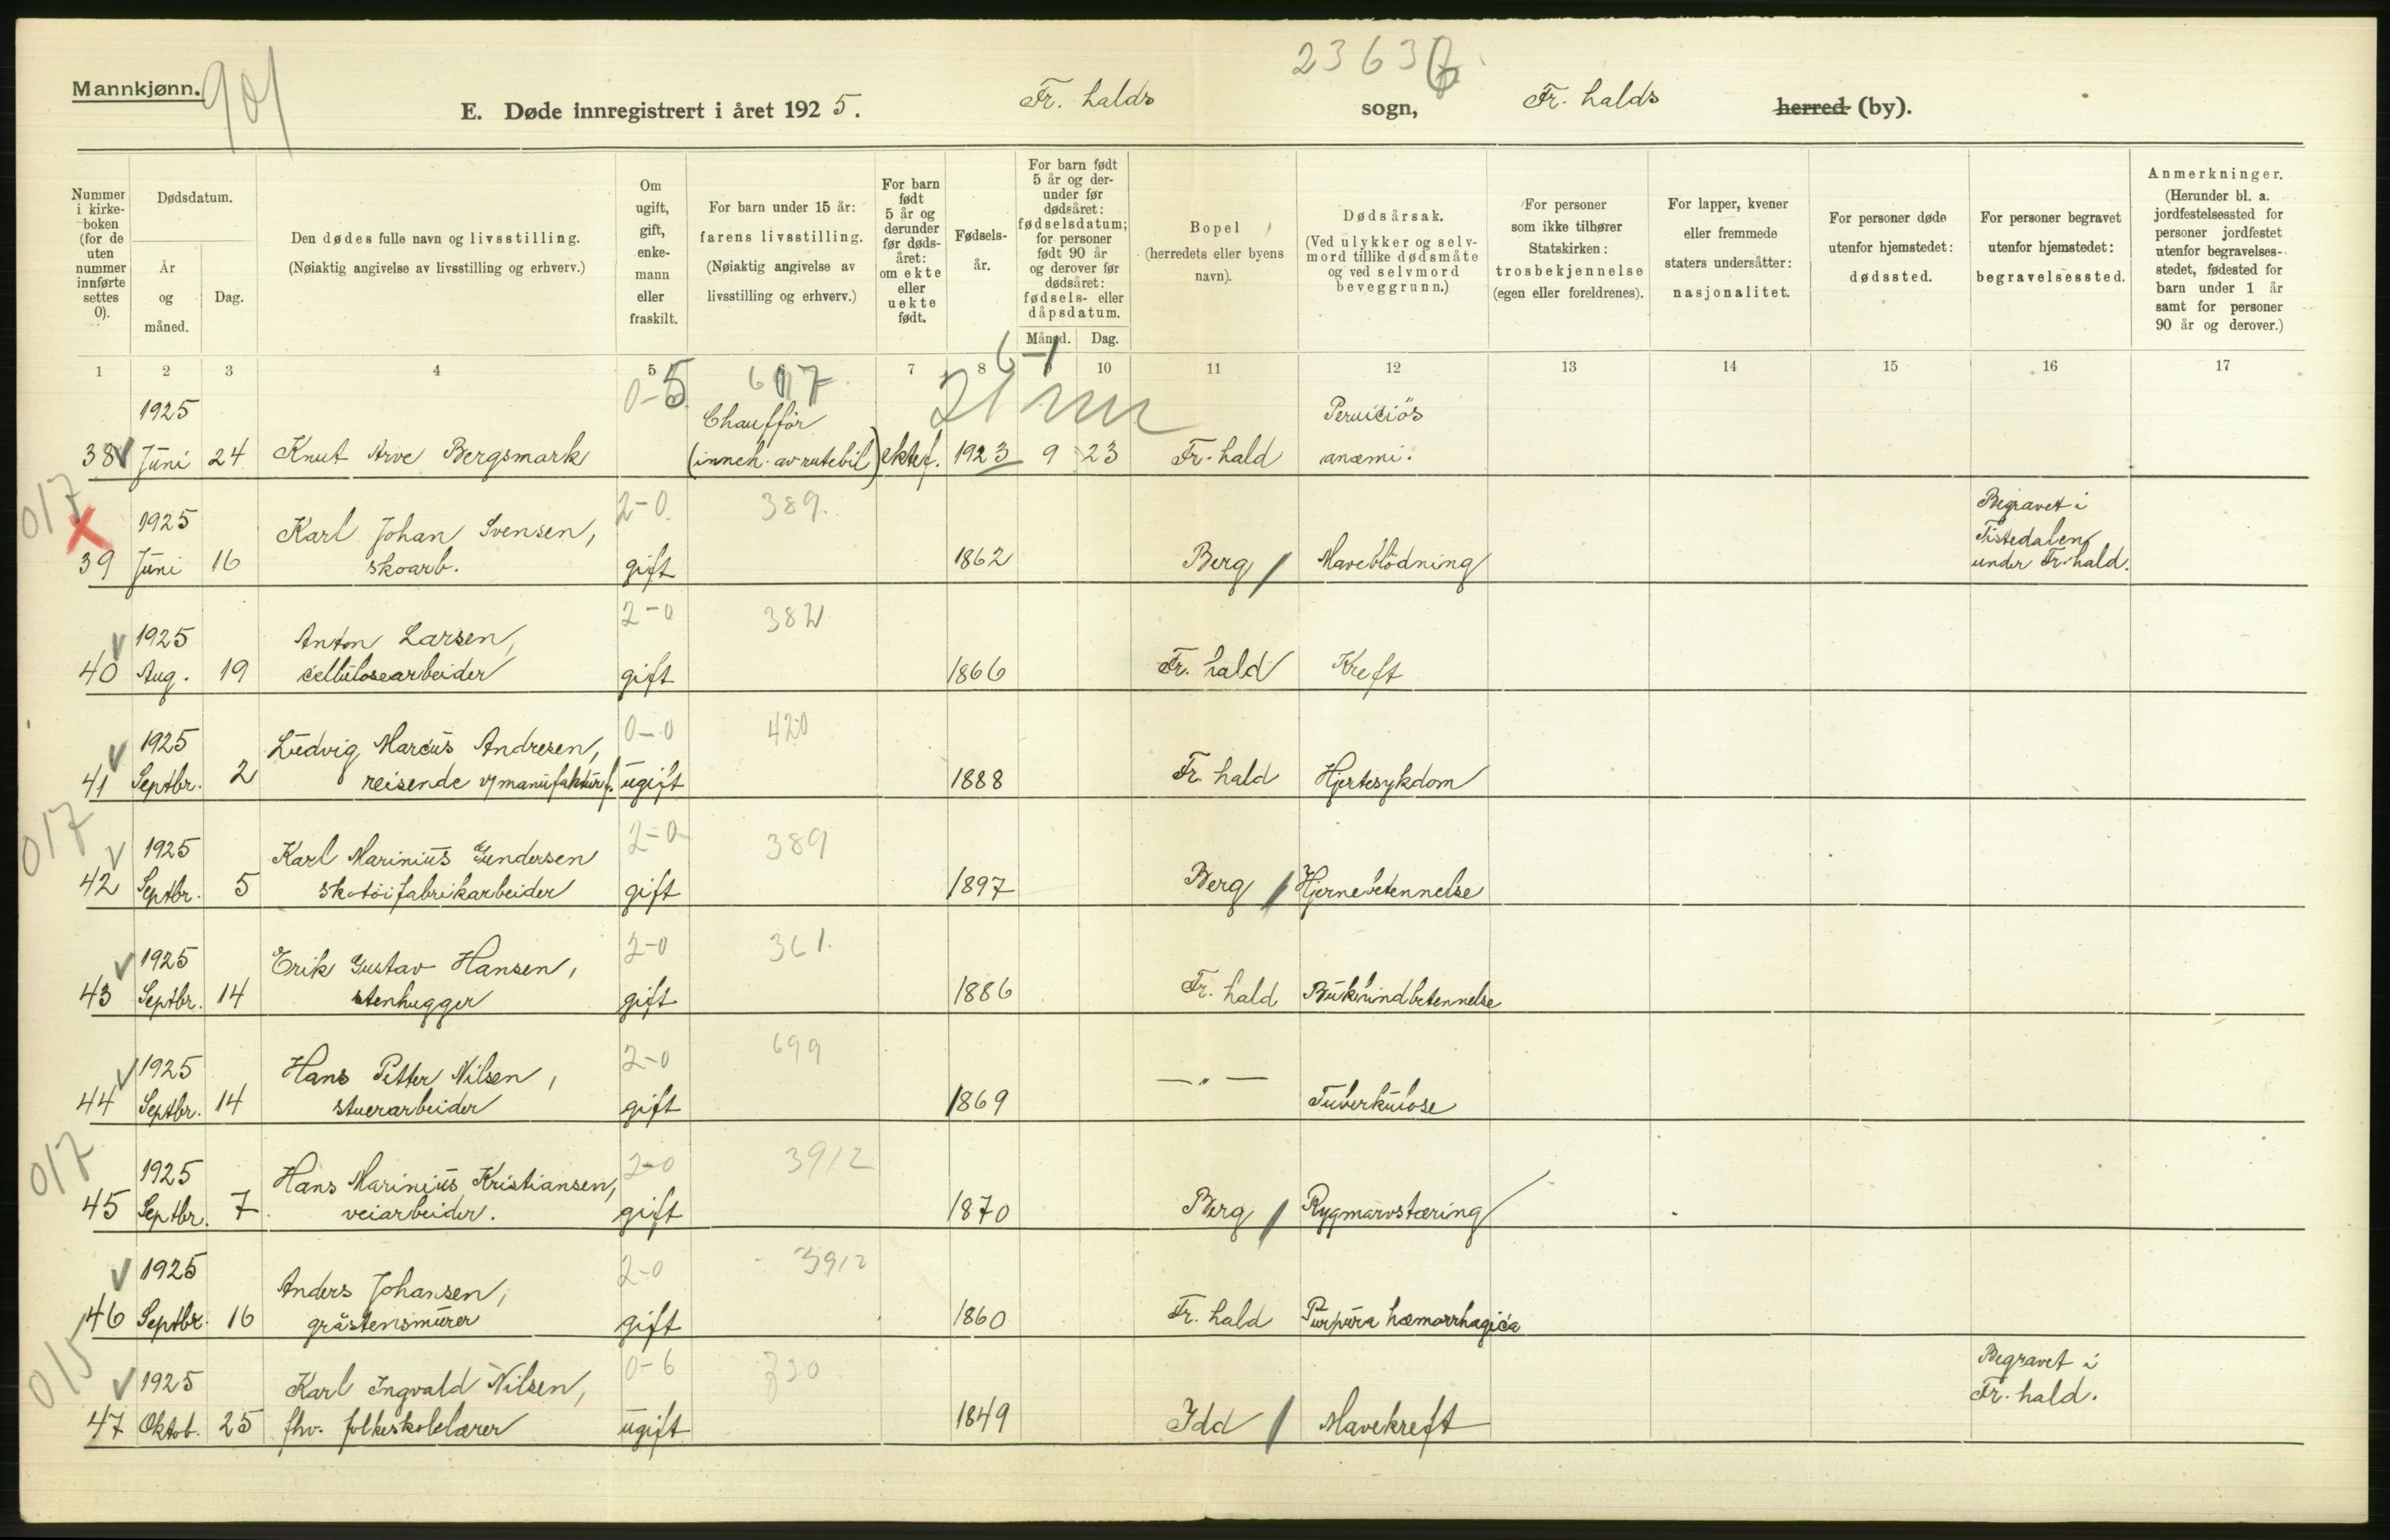 Mannkjønn.
901
23636
E. Døde innregistrert i året 1925. Fr. halds sogn, Fr. halds herred (by).
Nummer i kirke- boken (for de uten nummer innførte settes 0).
Dødsdatum.
År og måned.
Dag.
Den dødes fulle navn og livsstilling.
(Nøiaktig angivelse av livsstilling og erhverv.)
Om ugift, gift, enke- mann eller fraskilt.
For barn under 15 år:
farens livsstilling.
(Nøiaktig angivelse av
livsstilling og erhverv.)
For barn født 5 år og derunder før døds- året: om ekte eller uekte født.
Fødsels- år.
For barn født 5 år og der- under før dødsåret: fødselsdatum; for personer født 90 år og derover før dødsåret: fødsels- eller dåpsdatum.
Måned. Dag.
Bopel
(herredets eller byens
navn).
Dødsårsak.
(Ved ulykker og selv-
mord tillike dødsmåte
og ved selvmord
beveggrunn.)
For personer
som ikke tilhører
Statskirken:
trosbekjennelse
(egen eller foreldrenes).
For lapper, kvener
eller fremmede
staters undersåtter:
nasjonalitet.
For personer døde
utenfor hjemstedet:
dødssted.
For personer begravet
utenfor hjemstedet:
begravelsessted.
Anmerkninger.
(Herunder bl. a.
jordfestelsessted for
personer jordfestet
utenfor begravelses-
stedet, fødested for
barn under 1 år
samt for personer
90 år og derover.)
1 2 3 4 5 6 7 8 10 11 12 13 14 15 16 17
0-5 6-1
1925 Chauffør Perniciøs
38 Juni 24 Knut Arve Bergsmark (inneh. av rutebil) ektef. 1923 9 23 Fr. hald anæmi.
017 2-0 389. Begravet i
1925 Karl Johan Svensen, Tistedalen
39 Juni 16 skoarb. gift 1862 Berg / Maveblödning under Fr. hald.
2-0 382
1925 Anton Larsen,
40 Aug. 19 cellulosearbeider gift 1866 Fr. hald Kreft
0-0 420
1925 Ludvig Marcus Andresen,
41 Septbr. 2 reisende v/ manufakturf. ugift 1888 Fr. hald Hjertesykdom
017 2-0 389
1925 Karl Marinius Gundersen
42 Septbr. 5 skotöifabrikarbeider gift 1897 Berg / Hjernebetennelse
2-0 361.
1925 Erik Gustav Hansen,
43 Septbr. 14 stenhugger gift 1886 Fr. hald Bukhindbetennelse
2-0 699
1925 Hans Petter Nilsen,
44 Septbr. 14 stuerarbeider gift 1869 — " — Tuberkulose
017 2-0 3912
1925 Hans Marinius Kristiansen,
45 Septbr. 7 veiarbeider. gift 1870 Berg / Rygmarvstæring
2-0 3912
1925 Anders Johansen,
46 Septbr. 16 gråstensmurer gift 1860 Fr. hald Purpura hæmorrhagica
015 0-6 730 Begravet i
1925 Karl Ingvald Nilsen, Fr. hald.
47 Oktob. 25 fhv. folkeskolelærer ugift 1849 Idd / Mavekreft